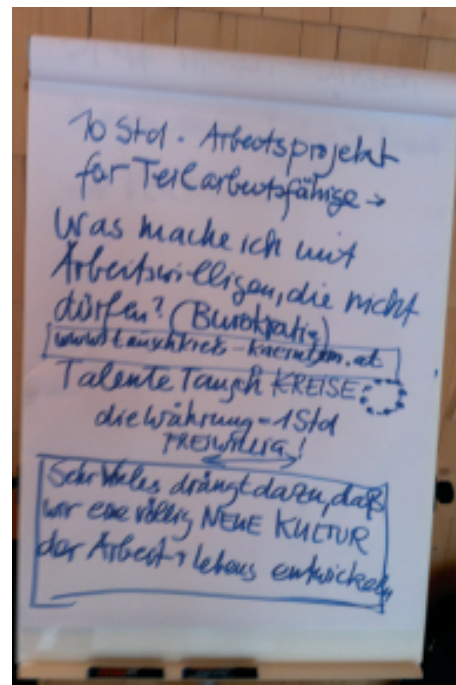 10 Std. Arbeitsprojekt
für Teilarbeitsfähige →
Was mache ich mit
Arbeitswilligen, die nicht
dürfen? (Bürokratie)
www.tauschkreis-kaernten.at
Talente Tausch KREISE:
die Währung - 1 Std
FREIWILLIG!
Sehr Vieles drängt dazu, daß
wir eine völlig NEUE KULTUR
der Arbeit + lebens entwickeln